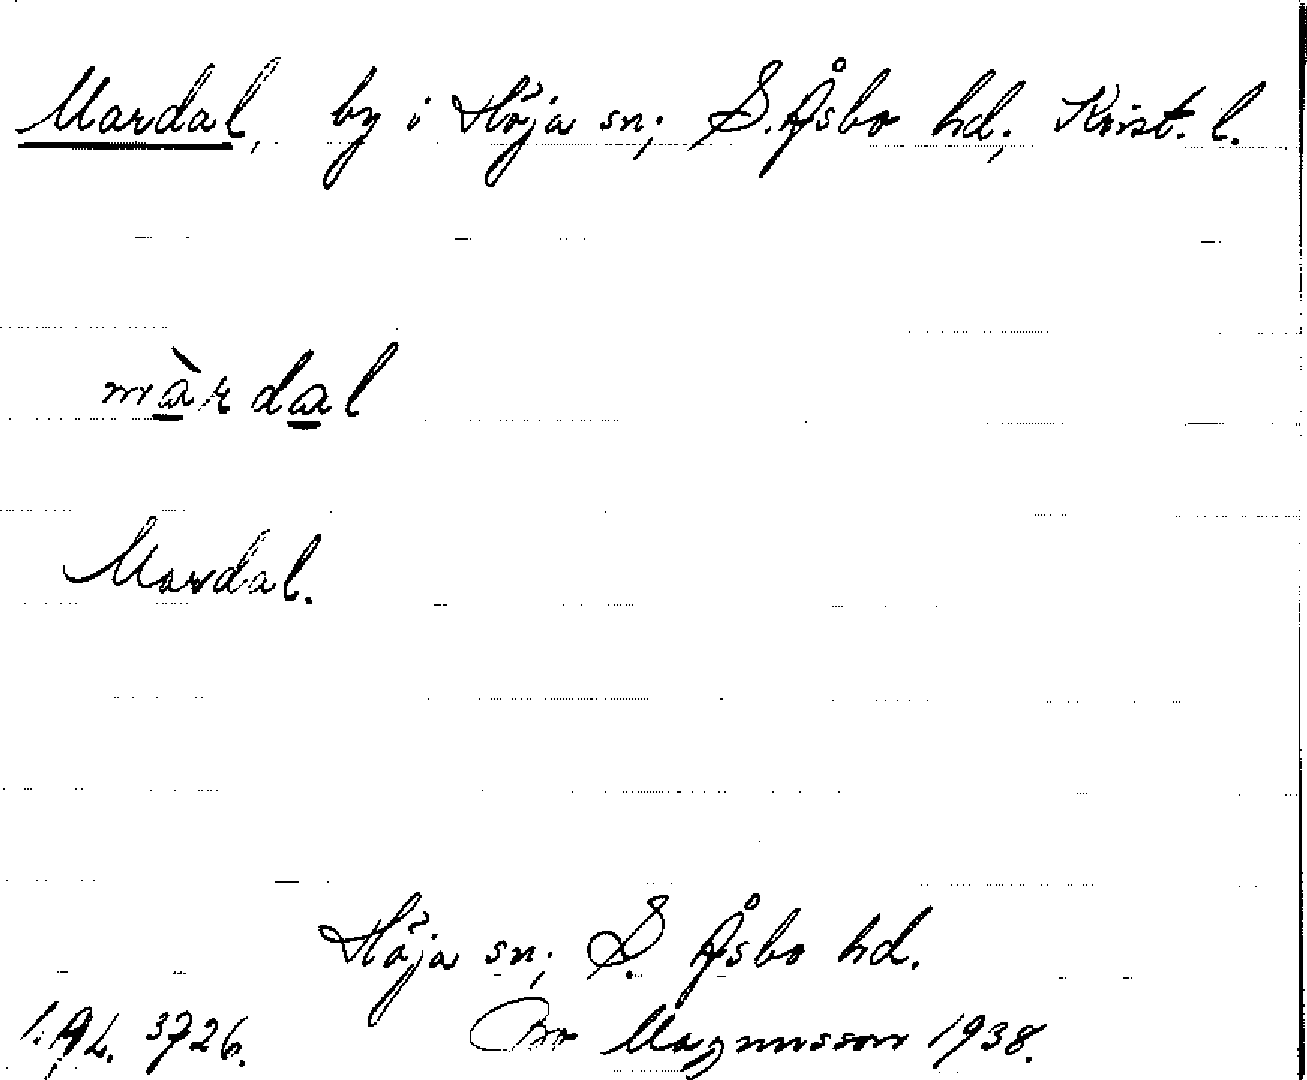 Mardal, by i Höja sn; S. Åsbo hd; Krist. l.
màrdal
Mardal.
Höja sn; S. Åsbo hd.
Bo Magnusson 1938.
3726.